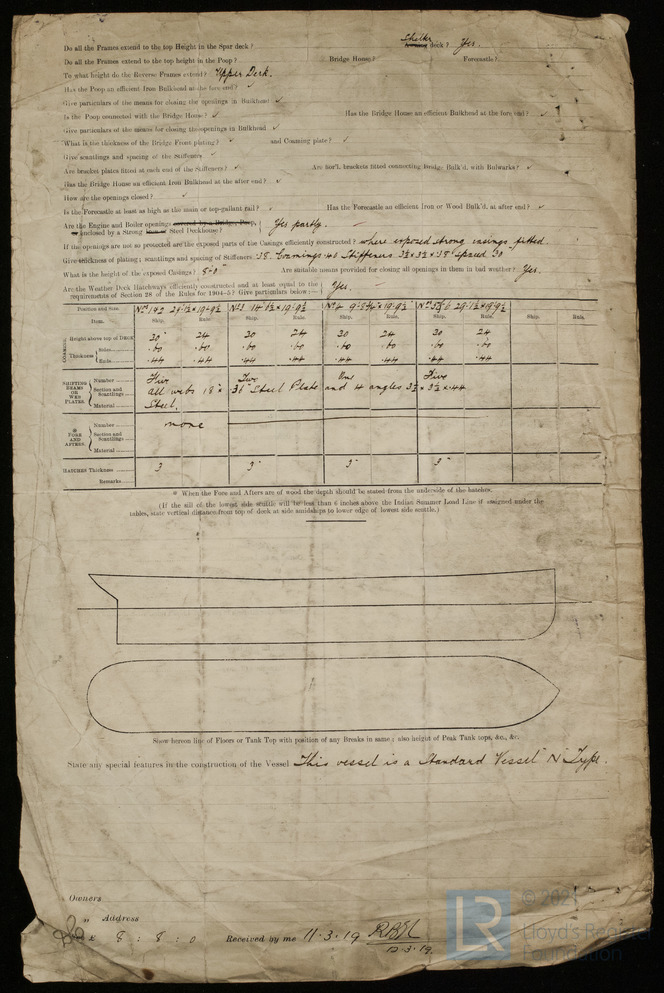 Do all the Frames extend to the top Height in the Spar deck? Shelter Awning deck? Yes.
Do all the Frames extend to the top Height in the Poop? Bridge House? Forecastle?
To what height do the Reverse Frames extend? Upper Deck.
Has the Poop an efficient Iron Bulkhead at the fore end? ✓
Give particulars of the means for closing the openings in Bulkhead ✓
Is the Poop connected with the Bridge House? ✓ Has the Bridge House an efficient Bulkhead at the fore end? ✓
Give particulars of the means for closing the openings in Bulkhead ✓
What is the thickness of the Bridge Front plating? ✓ and Coaming plate? ✓
Give scantlings and spacing of the Stiffeners ✓
Are bracket plates fitted at each end of the Stiffeners? ✓ Are hor'l. brackets fitted connecting Bridge Bulk'd. with Bulwarks? ✓
Has the Bridge House an efficient Iron Bulkhead at the after end? ✓
How are the openings closed? ✓
Is the Forecastle at least as high as the main or top-gallant rail? ✓ Has the Forecastle an efficient Iron or Wood Bulk'd. at after end? ✓
Are the Engine and Boiler openings covered by a Bridge, Poop,
or enclosed by a Strong Iron or Steel Deckhouse? Yes partly.
If the openings are not so protected are the exposed parts of the Casings efficiently constructed? where exposed strong casings fitted.
Give thickness of plating; scantlings and spacing of Stiffeners .35 Coamings .40 Stiffeners 3½ x 3½ x .35 spaced 30
What is the height of the exposed Casings? 8-0" Are suitable means provided for closing all openings in them in bad weather? Yes.
Are the Weather Deck Hatchways efficiently constructed and at least equal to the
requirements of Section 28 of the Rules for 1904-5? Give particulars below:— Yes.
Position and Size. Nos 1 & 2 No 3 No 4 Nos 5 & 6
Item. Ship. Rule. Ship. Rule. Ship. Rule. Ship. Rule. Ship. Rule.
COAMING Height above top of DECK 30" 24 30 24 30 24 30 24
Thickness Sides .60 .60 .60 .60 .60 .60 .60 .60
Ends .44 .44 .44 .44 .44 .44 .44 .44
SHIFTING BEAMS OR WEB PLATES Number Five Two One Five
Section and Scantlings all webs 18" x .36 Steel Plate and 4 angles 3½ x 3½ x .44
Material Steel.
* FORE AND AFTERS. Number none
Section and Scantlings
Material
HATCHES Thickness 3 3" 3" 3"
Remarks
* When the Fore and Afters are of wood the depth should be stated from the underside of the hatches.
(If the sill of the lowest side scuttle will be less than 6 inches above the Indian Summer Load Line if assigned under the
tables, state vertical distance from top of deck at side amidships to lower edge of lowest side scuttle.)
Show hereon line of Floors or Tank Top with position of any Breaks in same; also height of Peak Tank tops, &c., &c.
State any special features in the construction of the Vessel This vessel is a Standard Vessel "N" Type.
Owners
" Address
8 : 8 : 0 Received by me 11.3.19
12.3.19.
LR
Lloyd's Register
Foundation